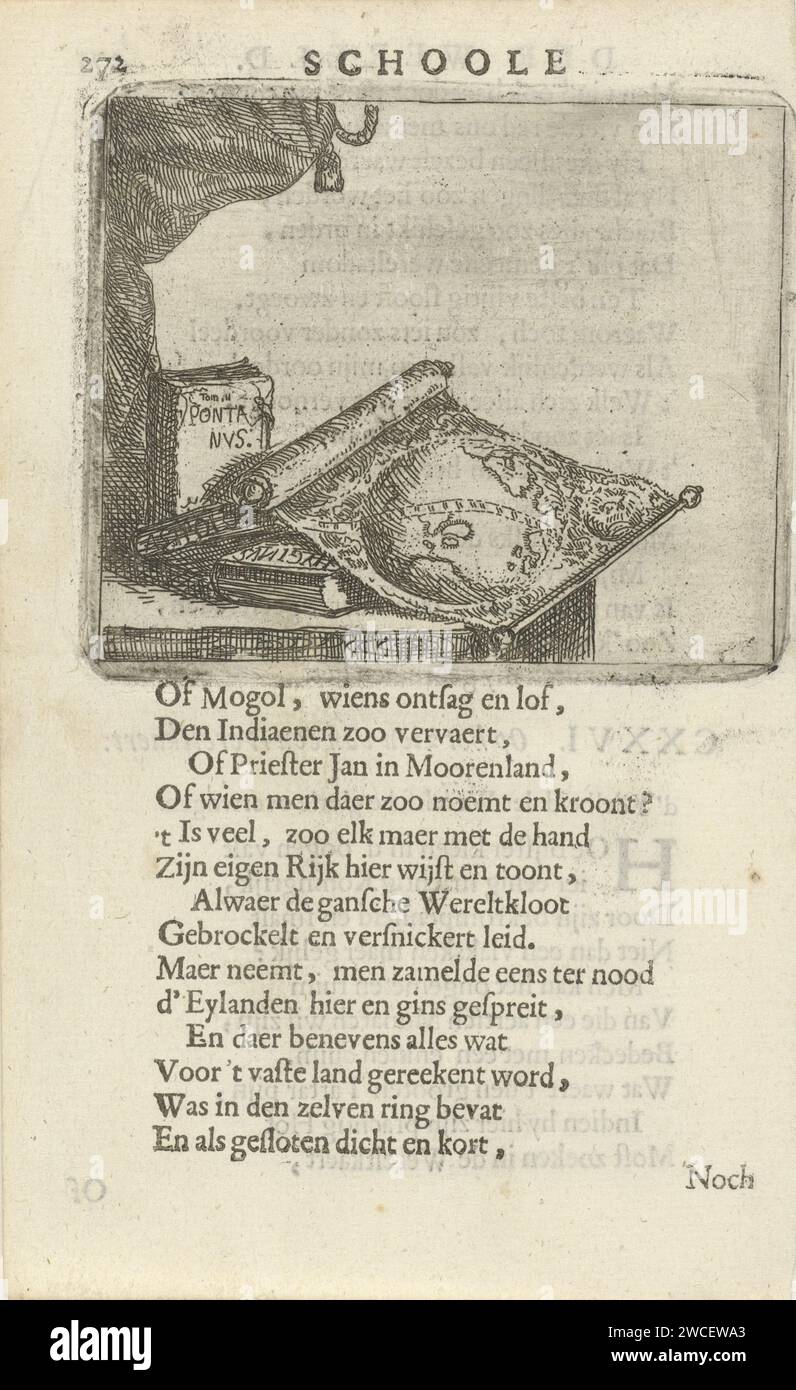 272 SCHOOLE
Tom. II
PONTA
NVS.
HVGINVS
Of Mogol, wiens ontſag en lof,
Den Indiaenen zoo vervaert,
Of Prieſter Jan in Moorenland,
Of wien men daer zoo noemt en kroont?
't Is veel, zoo elk maer met de hand
Zijn eigen Rijk hier wijſt en toont,
Alwaer de ganſche Wereltkloot
Gebrockelt en verſnickert leid.
Maer neemt, men zamelde eens ter nood
d'Eylanden hier en gins geſpreit,
En daer benevens alles wat
Voor 't vaſte land gereekent word,
Was in den zelven ring bevat
En als geſloten dicht en kort,
Noch
alamy
Image ID: 2WCEWA3
www.alamy.com